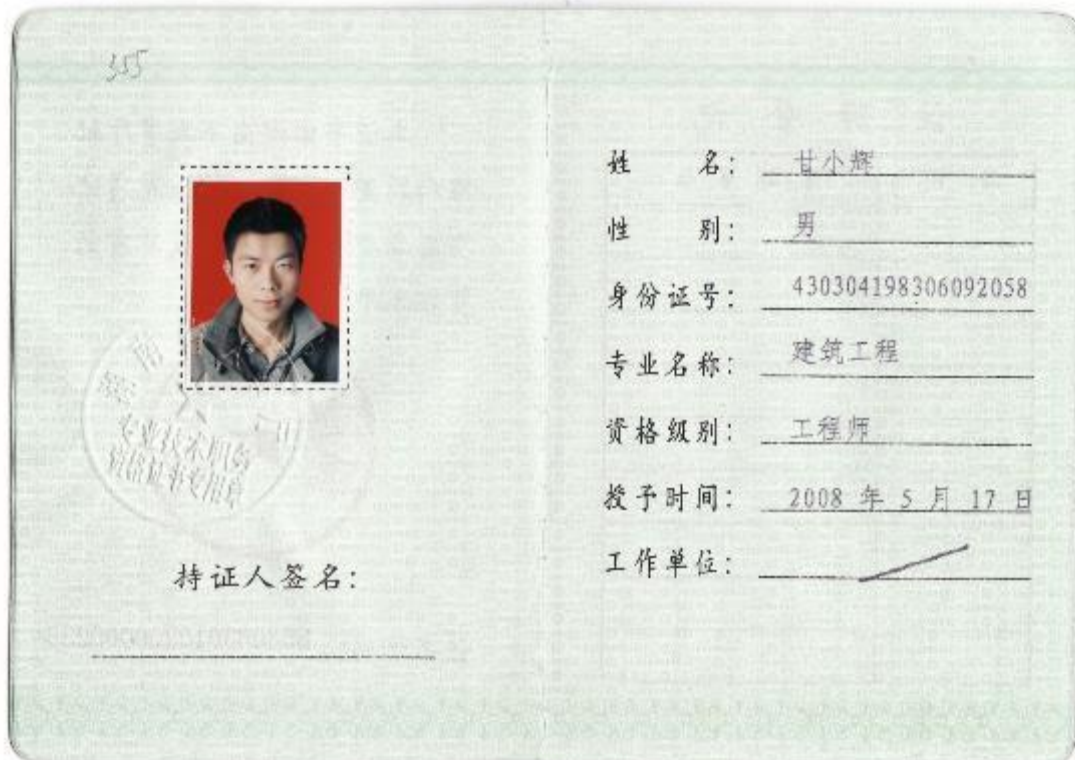 355
专业技术职务
持证人签名:
姓 名: 甘小辉
性 别: 男
身份证号: 430304198306092058
专业名称: 建筑工程
资格级别: 工程师
授予时间: 2008 年 5 月 17 日
工作单位: